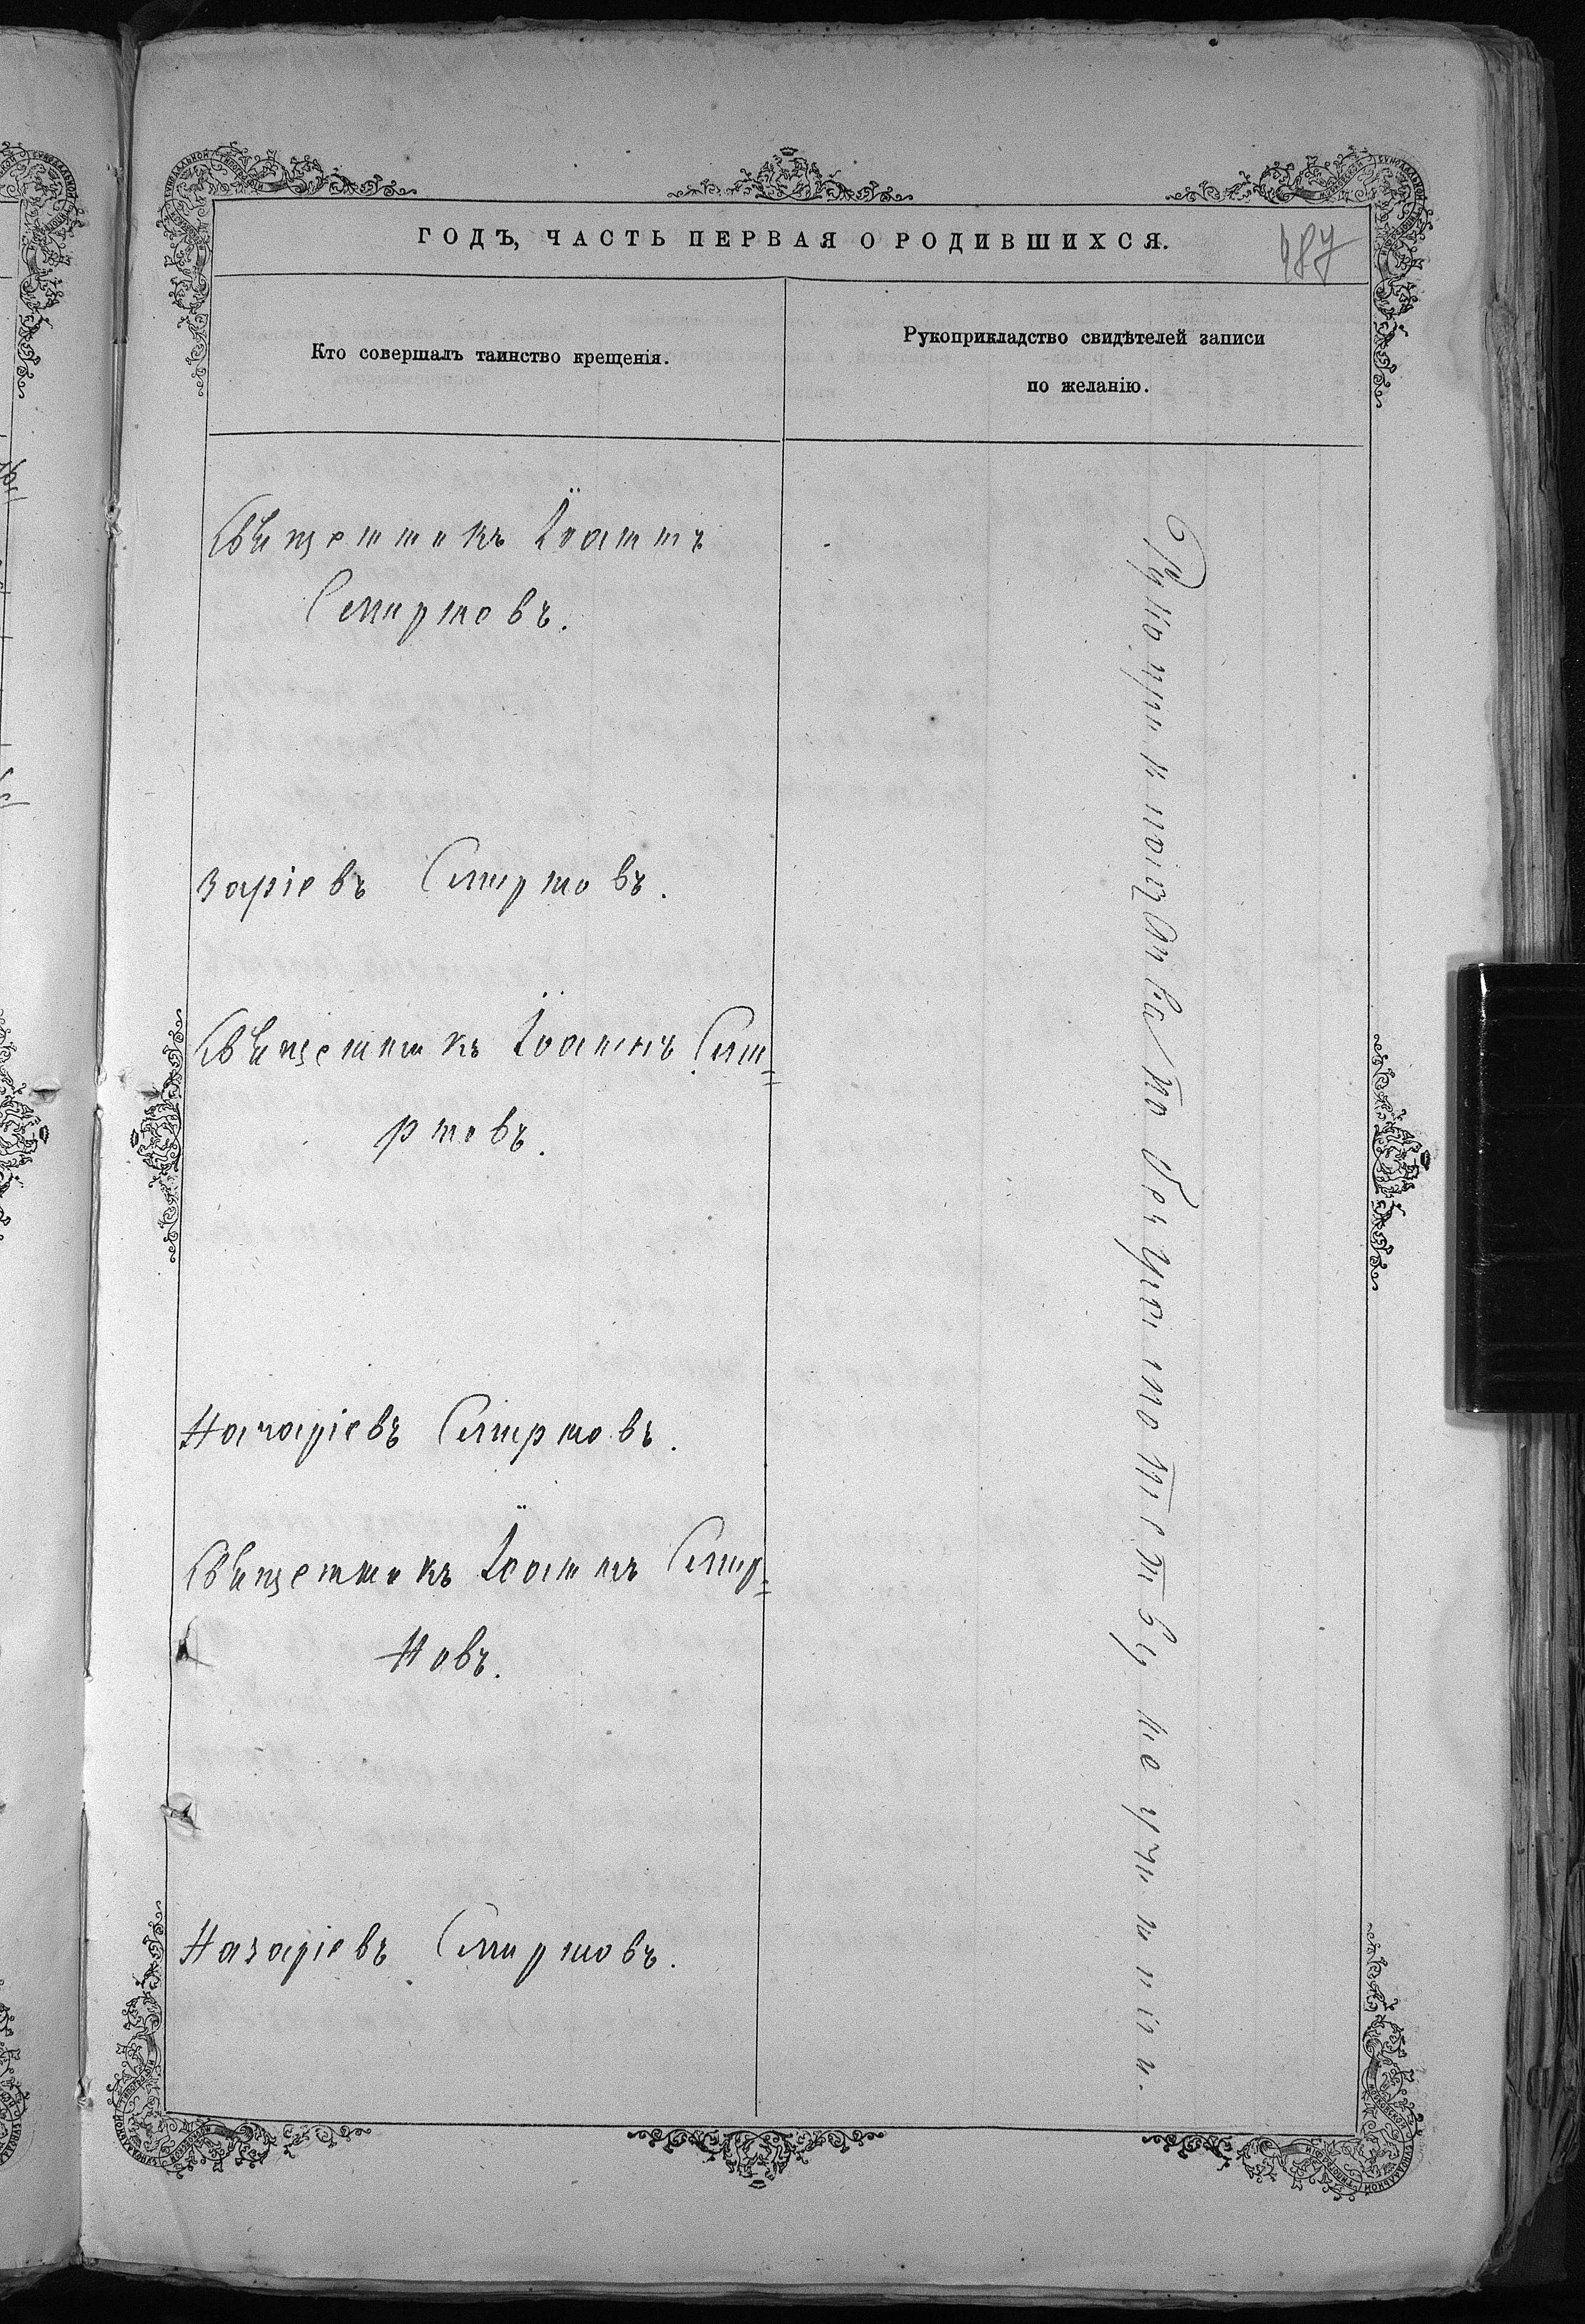 ГОДЪ, ЧАСТЬ ПЕРВАЯ О РОДИВШИХСЯ.
487
Кто совершалъ таинство крещенія.
Рукоприкладство свидѣтелей записи
по желанію.
Священникъ Іоаннъ
Смирновъ.
заріевъ Смирновъ.
Священникъ Іоаннъ Сми=
рновъ.
Назаріевъ Смирновъ.
Священникъ Іоаннъ Смир=
новъ.
Назаріевъ Смирновъ.
Рукоприкладства по безграмотству не учинили.